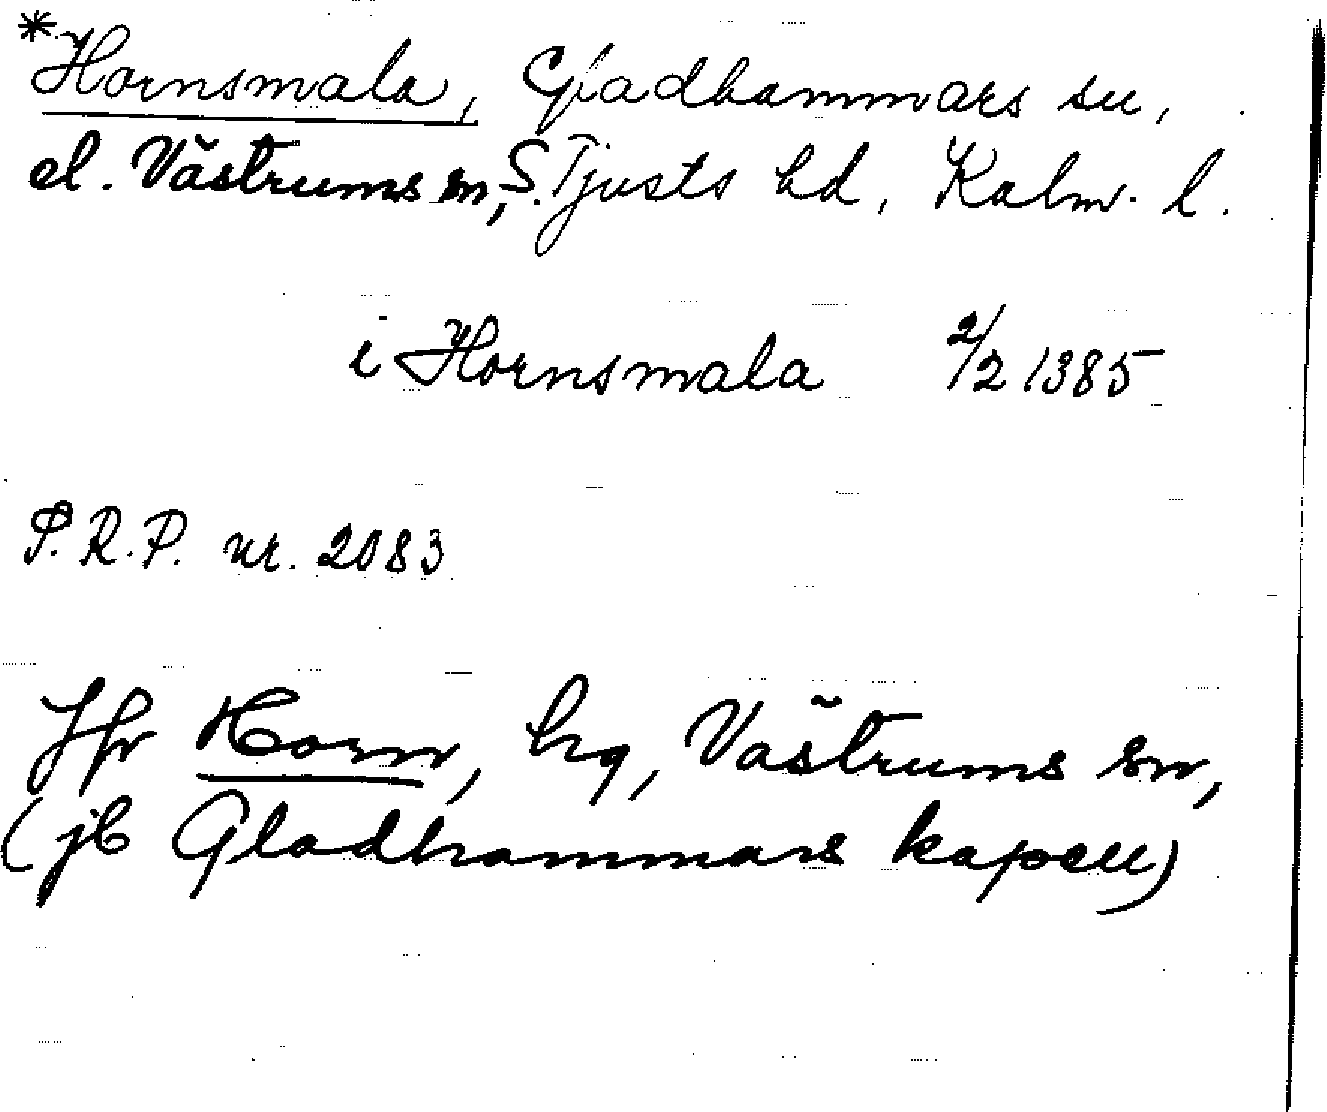 *Hornsmala, Gladhammars sn,
el. Västrums sn, S. Tjusts hd, Kalm. l.
i Hornsmala 2/2 1385
P.R.P. nr. 2083
Jfr Horn, hg, Västrums sn,
(jb Gladhammars kapell)